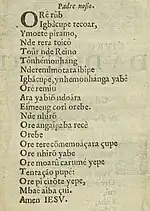 Padre nosso.
ORè rúb
Igbácupe tecoar,
Ymoetè piramo,
Nde rera toicò
Toùr nde Reino
Tonhemonhang
Nderemimotara ibipe
Igbácupe, ynhemonhanga yabè
Ore remiu
Ara yabiõ ndoára
Eimeeng cori orebe.
Nde nhirõ
Ore angaipaba recè
Orebe
Ore rerecòmemoãçara çupe
Ore nhirõ yabe
Ore moarũ carumè yepe
Tentação pupè:
Ore pĩ cirõte yepe,
Mbaè aiba çui.
Amen IESV.